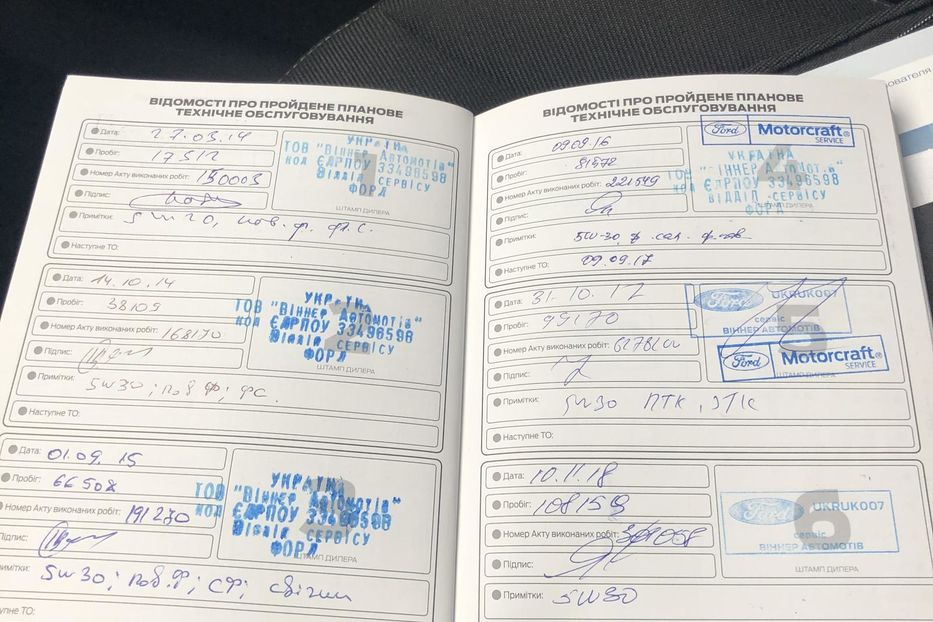 ВІДОМОСТІ ПРО ПРОЙДЕНЕ ПЛАНОВЕ
ТЕХНІЧНЕ ОБСЛУГОВУВАННЯ
Дата: 27.03.14
Пробіг: 17512
Номер Акту виконаних робіт: 150003
Підпис:
1
УКРАЇНА
ТОВ "ВІННЕР Автомотів"
КОД ЄДРПОУ 33496598
Відділ СЕРВІСУ
ФОРД
ШТАМП ДИЛЕРА
Примітки: 5W30, пов. ф. ф. с.
Наступне ТО:
Дата: 14.10.14
Пробіг: 38109
Номер Акту виконаних робіт: 168170
Підпис:
УКРАЇНА
ТОВ "ВІННЕР Автомотів"
КОД ЄДРПОУ 33496598
Відділ СЕРВІСУ
ФОРД
ШТАМП ДИЛЕРА
Примітки: 5W30; пов ф; фс.
Наступне ТО:
Дата: 01.09.15
Пробіг: 66508
Номер Акту виконаних робіт: 191270
Підпис:
УКРАЇНА
ТОВ "ВІННЕР Автомотів"
КОД ЄДРПОУ 33496598
Відділ СЕРВІСУ
ФОРД
ШТАМП ДИЛЕРА
мітки: 5W30; пов.ф; сф; свічки
упне ТО:
ВІДОМОСТІ ПРО ПРОЙДЕНЕ ПЛАНОВЕ
ТЕХНІЧНЕ ОБСЛУГОВУВАННЯ
Дата: 09.09.16
Пробіг: 81572
Номер Акту виконаних робіт: 221549
Підпис:
Ford Motorcraft® SERVICE
4
УКРАЇНА
ІННЕР Автомот.в
КОД ЄДРПОУ 33496598
ВІДДІЛ СЕРВІСУ
ФОРД
ДИЛЕРА
Примітки: 5W-30, ф. сал.
Наступне ТО: 09.09.17
Дата: 31.10.17
Пробіг: 99170
Номер Акту виконаних робіт:
Підпис:
5
Ford UKRUK007
сервіс
ВІННЕР АВТОМОТІВ
Ford Motorcraft® SERVICE
ШТАМП ДИЛЕРА
Примітки: 5W30 ПТК, ЗТК
Наступне ТО:
Дата: 10.11.18
Пробіг: 108159
Номер Акту виконаних робіт:
Підпис:
6
Ford UKRUK007
сервіс
ВІННЕР АВТОМОТІВ
ШТАМП ДИЛЕРА
Примітки: 5W30
ователя